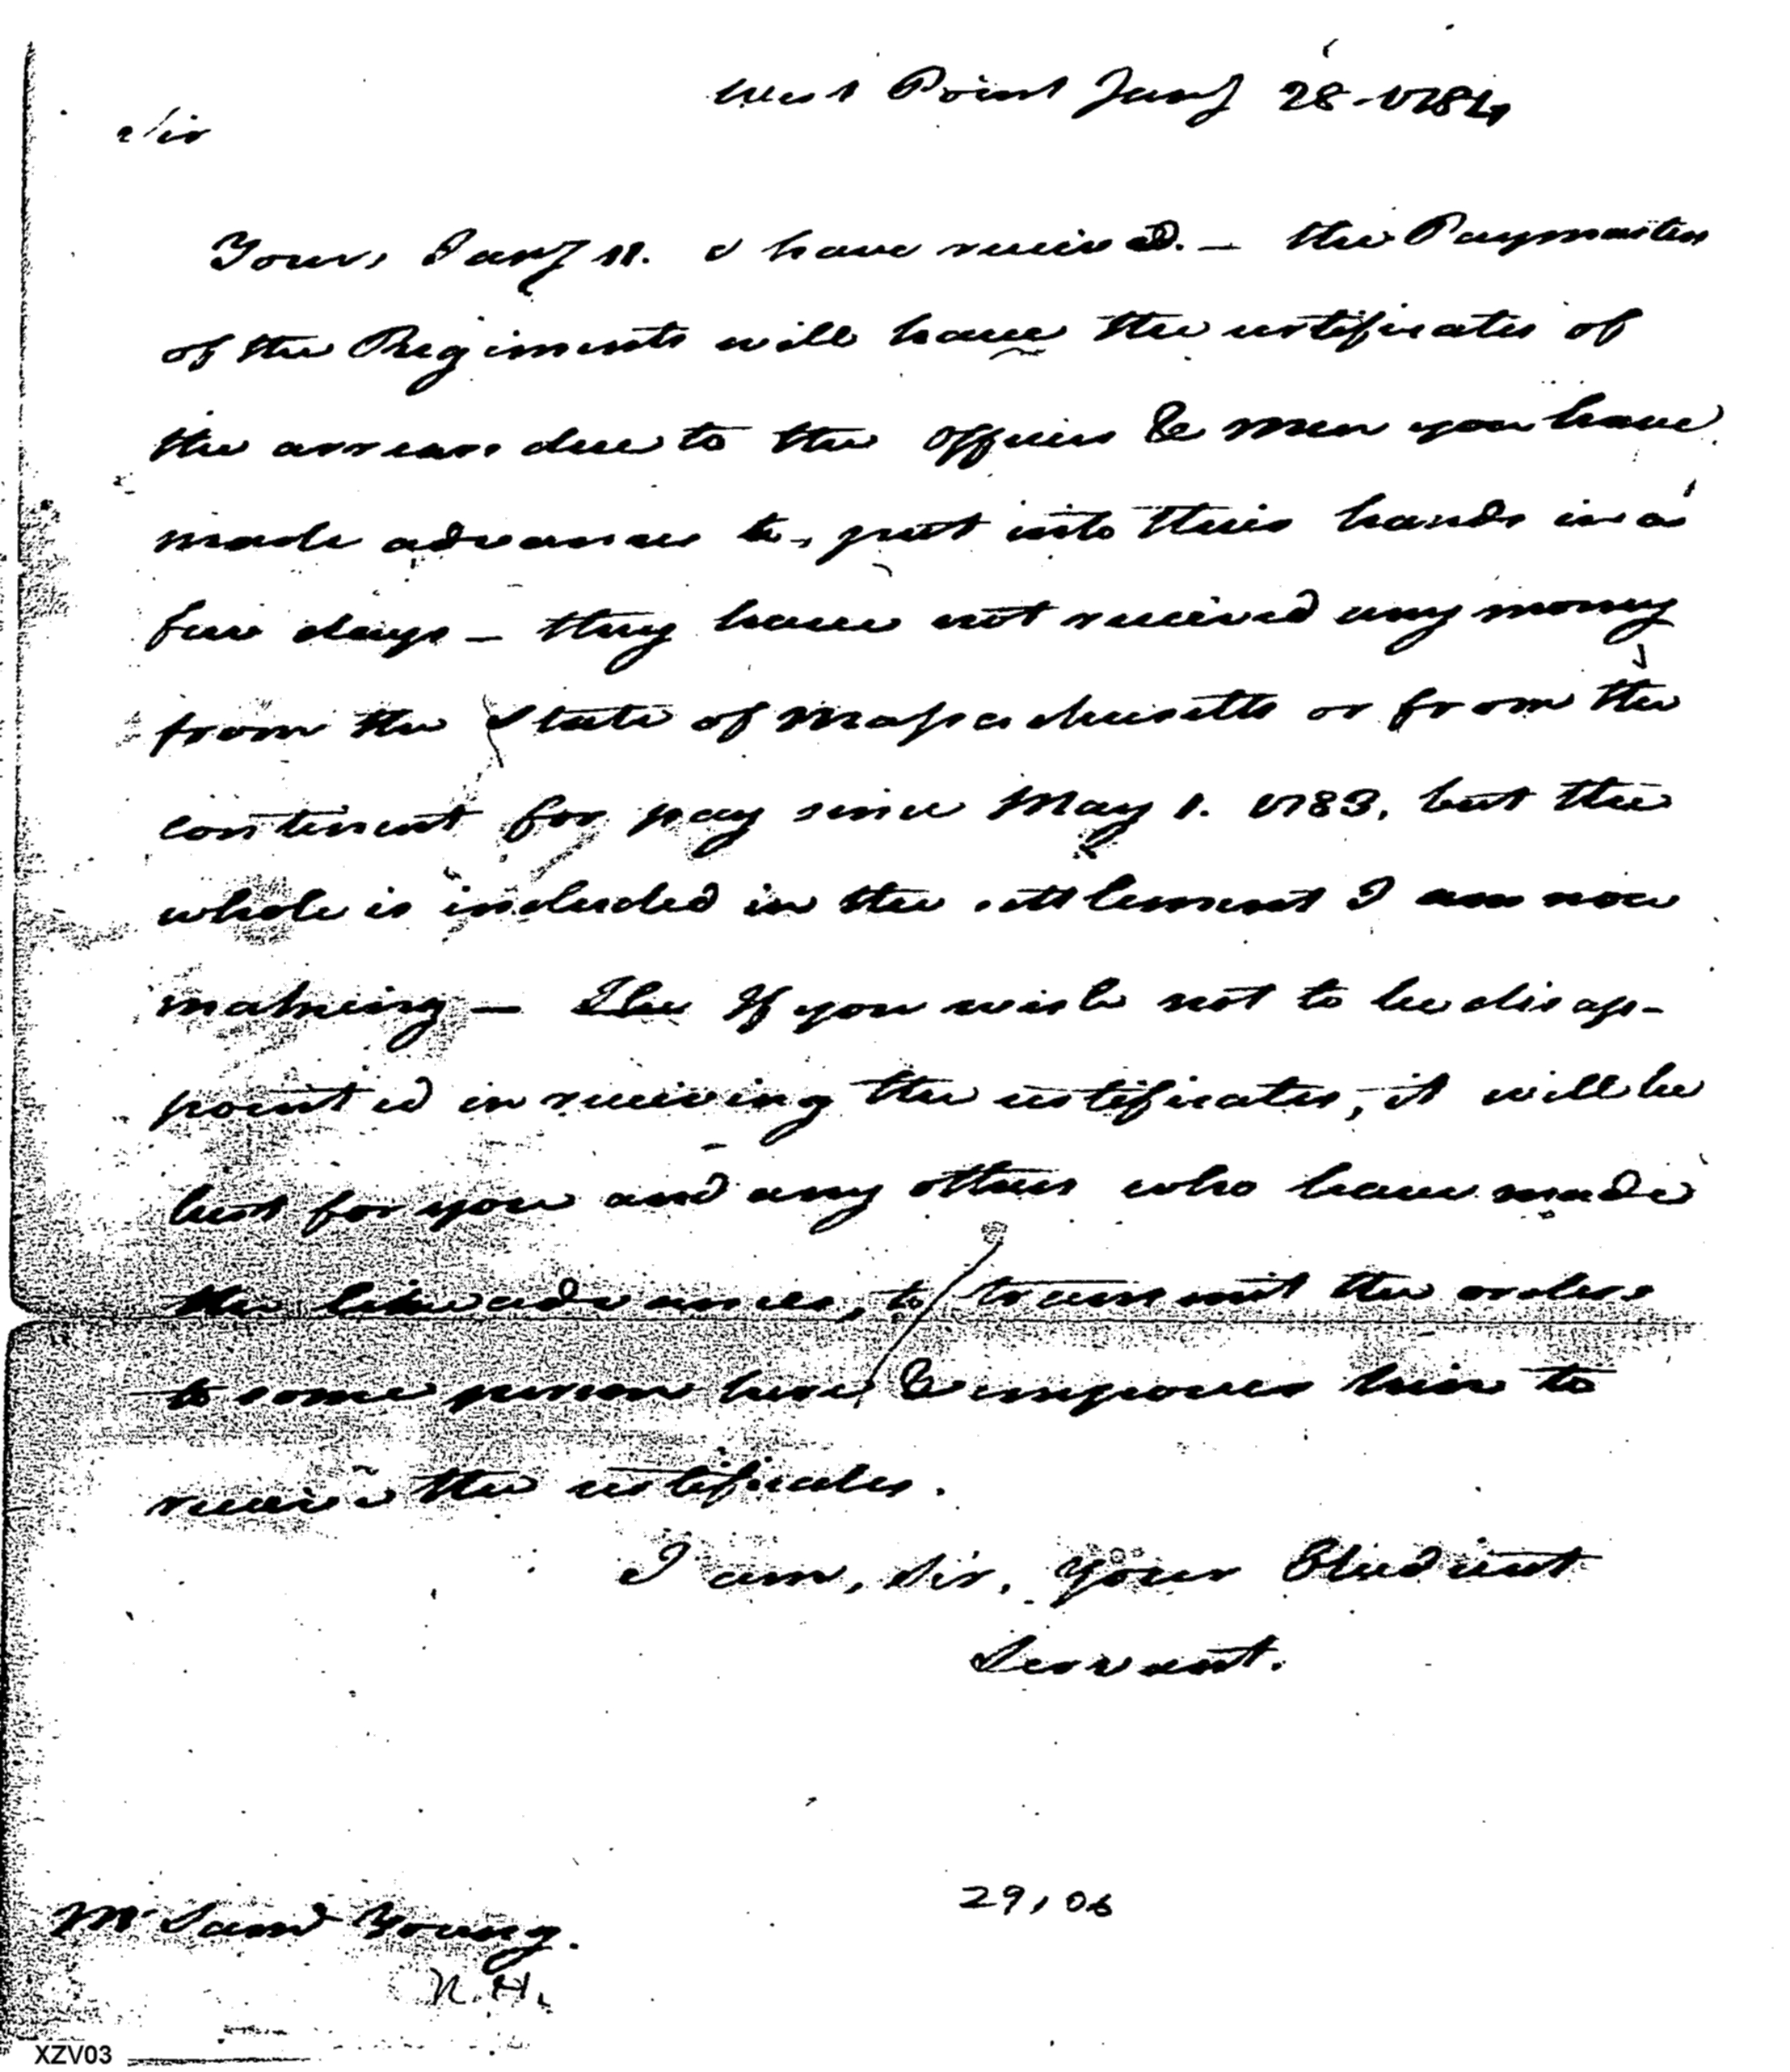 West Point Jany 28 - 1784
Sir
Yours Jany 11. I have received. — the Paymasters
of the Regiments will have the certificates of
the arrears due to the officers & men you have
made advances to, put into their hands in a
few days — they have not received any money
from the State of Massachusetts or from the
continent for pay since May 1. 1783, but the
whole is included in the settlement I am now
making — The If you wish not to be disap-
pointed in receiving the certificates, it will be
best for you and any others who have made
the like advances, to transmit the orders
to some person here, & empower him to
receive the certificates.
I am, Sir, Your Obedient
Servant.
29,06
Mr Saml Young.
N.H.
XZV03